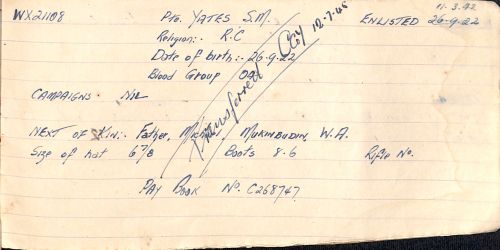 11.3.42
WX21108 Pte. YATES S.M. ENLISTED 26-9-22
Religion:- R.C
Date of birth:- 26-9-22
Blood Group
CAMPAIGNS NIL
Transferred 12-7-45
NEXT OF KIN:- Father, MUKINBUDIN, W.A.
Size of hat 6 7/8 Boots 8-6 Rifle No.
PAY BOOK No. C268747